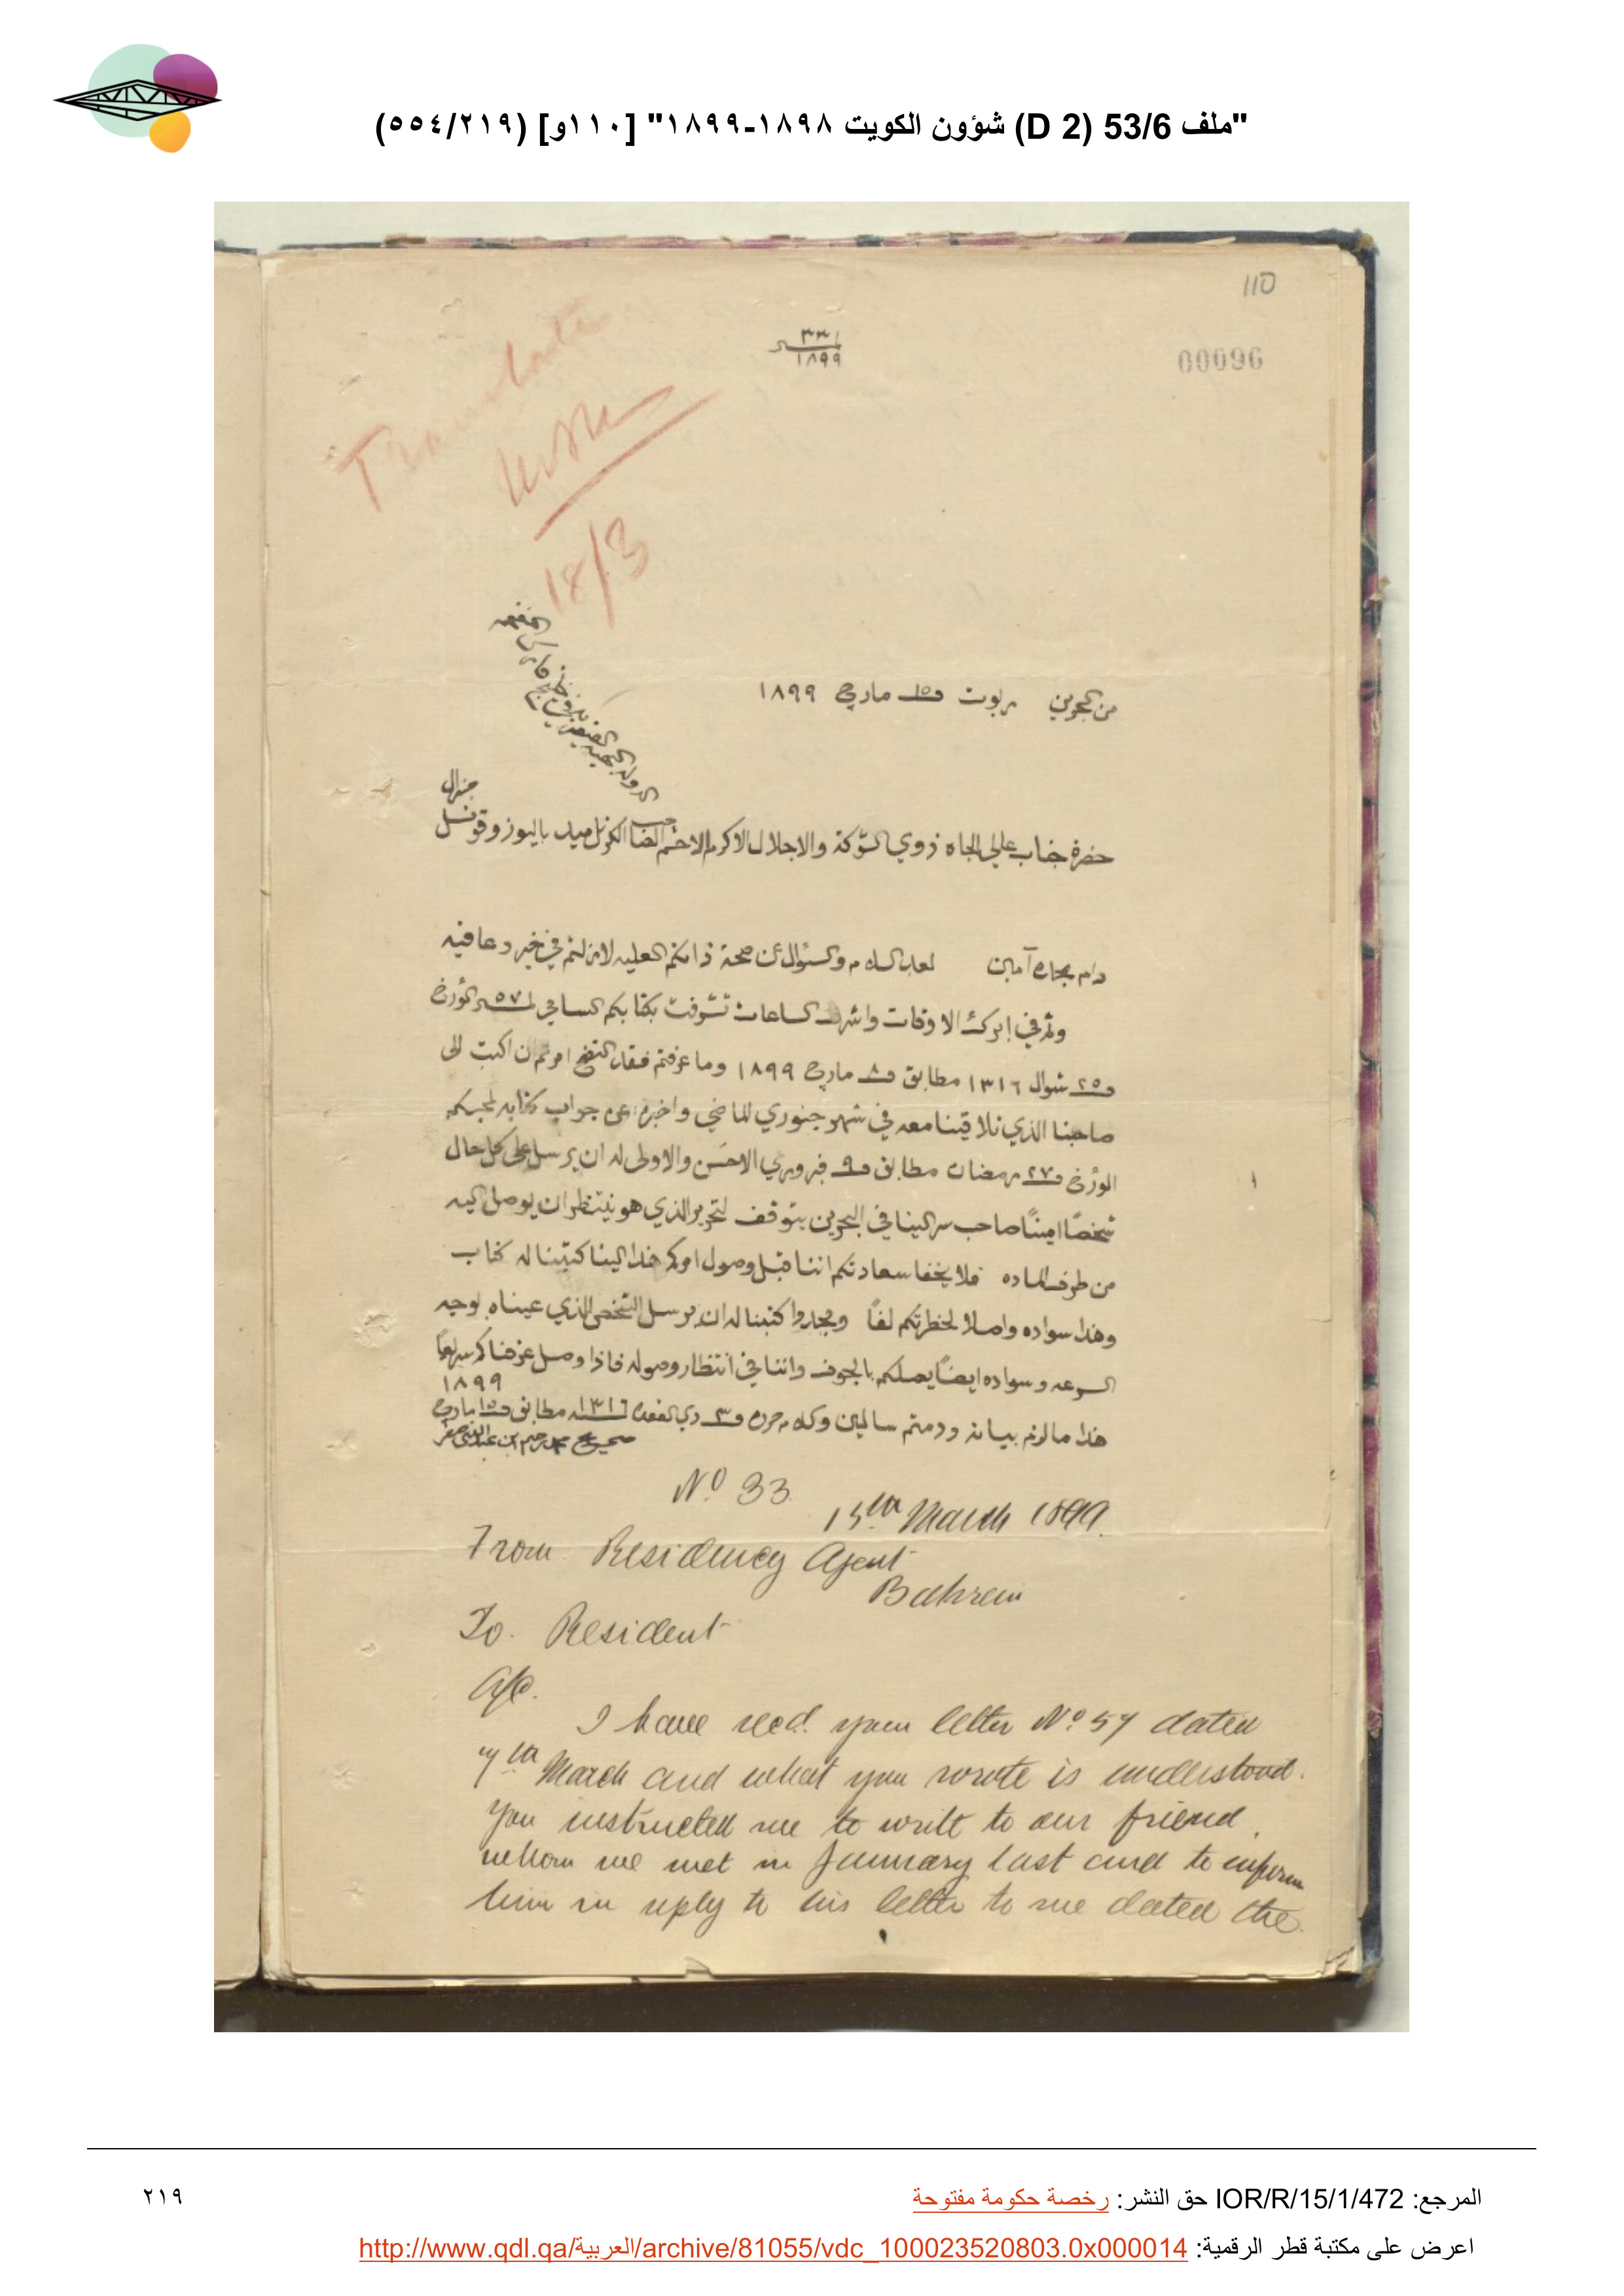 "ملف 53/6 (D 2) شؤون الكويت ١٨٩٨-١٨٩٩" [١١٠و] (٥٥٤/٢١٩)
110
٣٣
١٨٩٩
00096
Translate
18/3
من البحرين بوت ١٥ مارچ ١٨٩٩
الدولة البهية القيصرية
في خليج فارس
المفخم
جنرال
حضرة جناب عالي الجاه ذوي الشوكة والاجلال الاكرم الافخم الصاحب الكرنل ميد باليوز وقونسل
دام بجاه آمين لعد السلام والسئوال عن صحة ذاتكم العليه لازلتم في خير وعافيه
وثم في ابرك الاوقات واشرف الساعات تشرفت بكتابكم السامي نمرة ٥٧ المؤرخ
٢٥ شوال ١٣١٦ مطابق ٨ مارچ ١٨٩٩ وما عرفتم فقد اتضح امرتم ان اكتب الى
صاحبنا الذي تلاقينا معه في شهر جنوري الماضي واخبره عن جواب كتابه لمحبكم
المؤرخ ٢٧ رمضان مطابق ٩ فبروري الاحسن والاولى له ان يرسل على كل حال
شخصًا امينًا صاحب سر الينا في البحرين يتوقف لتحرير الذي هو ينتظر ان يوصل اليه
من طرف الماده فلا يخفا سعادتكم اننا قبل وصول امركم هذا الينا كتبنا له كتاب
وهذا سواده واصلا لحظرتكم لفًا ومجددا كتبنا له ان يرسل الشخص الذي عيناه بوجه
السرعه وسواده ايضًا يصلكم بالجوف واننا في انتظار وصوله فاذا وصل عرضناكم سريعًا
١٨٩٩
هذا مالزم بيانه ودمتم سالمين وكله حرره ٣ ذي القعده ١٣١٦ مطابق ١٥ مارچ
صحيح محمد رحيم ابن عبدالنبي صفر
No. 33
15th March 1899.
From Residency Agent
Bahrein
To. Resident
A/c.
I have recd. your letter No. 57 dated
7th March and what you wrote is understood.
You instructed me to write to our friend
whom we met in January last and to inform
him in reply to his letter to me dated the
المرجع: IOR/R/15/1/472 حق النشر: رخصة حكومة مفتوحة
٢١٩
اعرض على مكتبة قطر الرقمية: http://www.qdl.qa/العربية/archive/81055/vdc_100023520803.0x000014